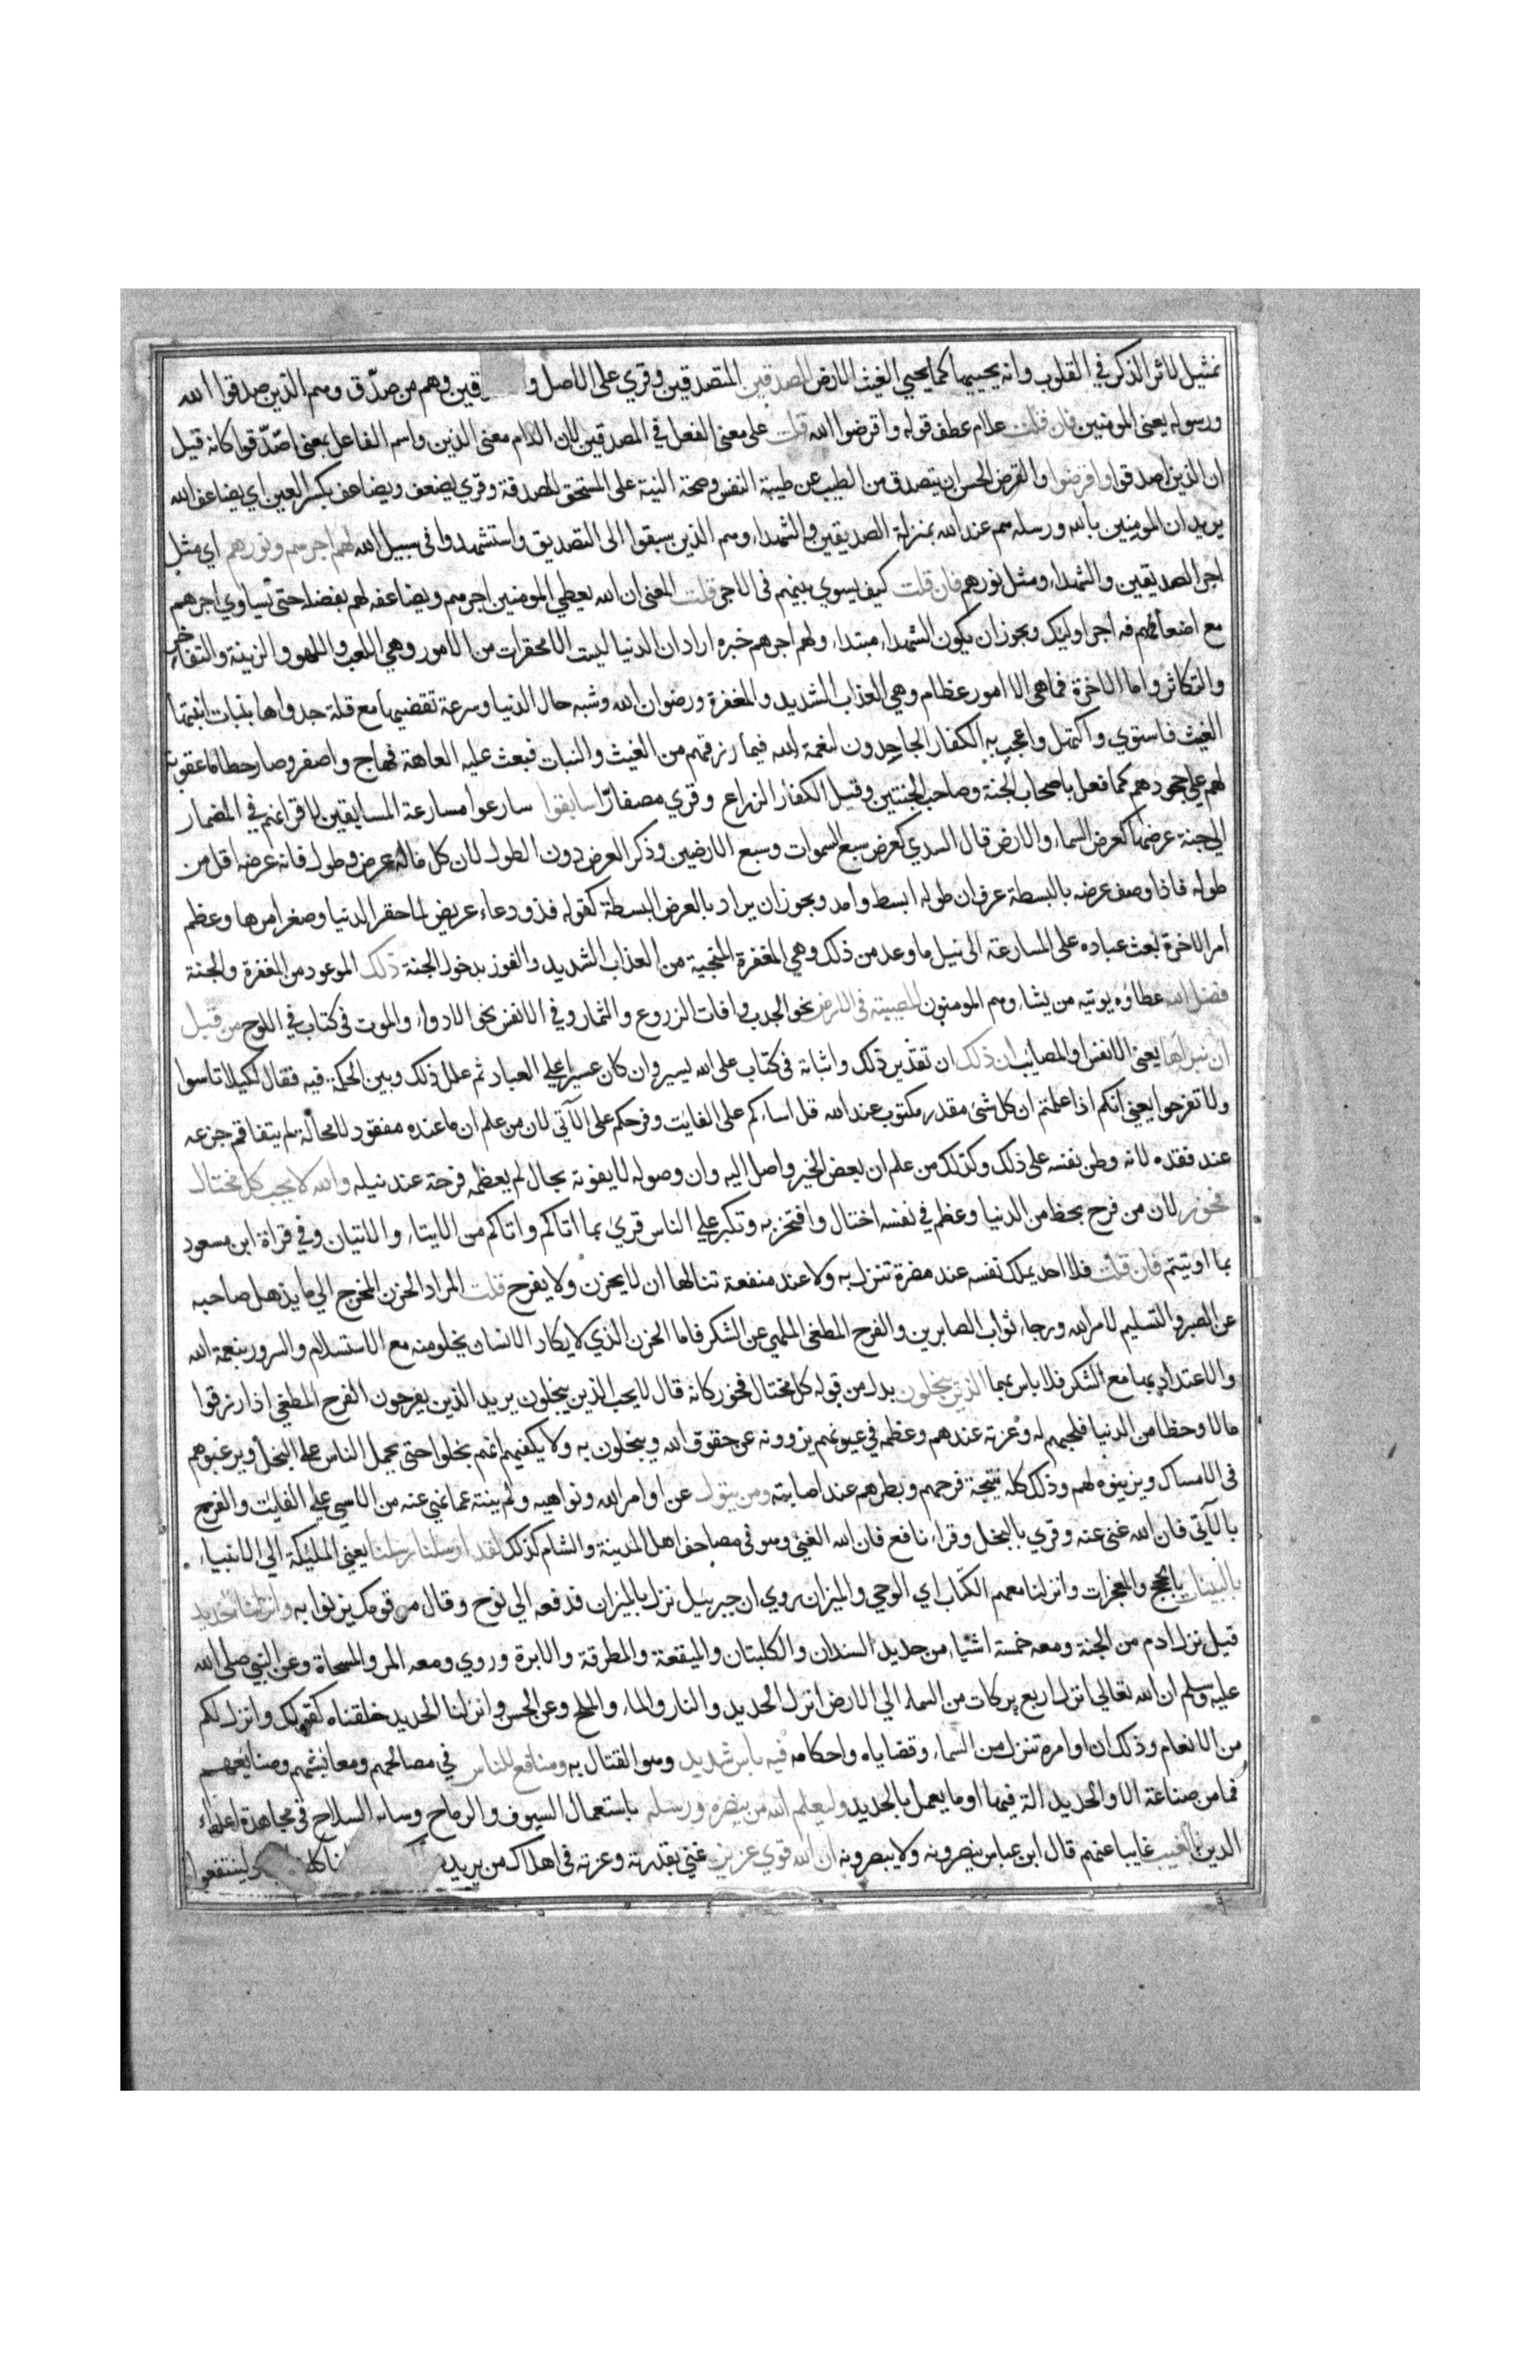 تمثيل لاثر الذكر في القلوب وانه يحييها كما يحيي الغيث الارض المصدقين المتصدقين وقري على الاصل و قين وهم من صدّق وهم الذين صدقوا الله
ورسوله يعنى المومنين فان قلت علام عطف قوله واقرضوا الله قلت على معنى الفعل في المصدقين لان اللام معنى الذين واسم الفاعل بمعنى اصّدّقوا كانه قيل
ان الذين اصدقوا واقرضوا والقرض الحسن ان يتصدق من الطيب عن طيبة النفس وصحة النية على المستحق للصدقة وقري يضعف ويضاعف بكسر العين اي يضاعف الله
يريد ان المومنين بالله ورسله هم عند الله بمنزلة الصديقين والشهداء وهم الذين سبقوا الى التصديق واستشهدوا فى سبيل الله لهم اجرهم ونورهم اي مثل
اجر الصديقين والشهداء ومثل نورهم فان قلت كيف يسوي بينهم فى الاجر قلت المعنى ان الله يعطي المومنين اجرهم ويضاعفه لهم بفضله حتى يساوي اجرهم
مع اضعافهم فه اجر اوليك ويجوز ان يكون الشهداء مبتداء ولهم اجرهم خبره اراد ان الدنيا ليست الا محقرات من الامور وهي اللعب واللهو والزينة والتفاخر
والتكاثر واما الاخرة فما هى الا امور عظام وهي العذاب الشديد والمغفرة ورضوان الله وشبه حال الدنيا وسرعة تقضيها مع قلة جدواها بنبات انبتها
الغيث فاستوي واكتهل واعجب به الكفار الجاحدون لنعمة الله فيما رزقهم من الغيث والنبات فبعث عليه العاهة فهاج واصفر وصار حطاما عقوبة
لهم على جحودهم كما فعل باصحاب الجنة وصاحب الجنتين وقيل الكفار الزراع وقري مصفارّا سابقوا سارعوا مسارعة المسابقين لاقرانهم في المضمار
الي جنة عرضها كعرض السماء والارض قال السدي كعرض سبع السموات وسبع الارضين وذكر العرض دون الطول لان كل ماله عرض وطول فانه عرضه اقل من
طوله فاذا وصف عرضه بالبسطة عرف ان طوله ابسط وامد ويجوز ان يراد بالعرض البسطة كقوله فذو دعاء عريض لما حقر الدنيا وصغر امرها وعظم
امر الاخرة بعث عباده على المسارعة الى نيل ما وعد من ذلك وهي المغفرة المنجية من العذاب الشديد والفوز بدخول الجنة ذلك الموعود من المغفرة والجنة
فضل الله عطاؤه يوتيه من يشاء وهم المومنون المصيبة فى الارض نحو الجدب وافات الزروع والثمار وفي الانفس نحو الادواء والموت فى كتاب في اللوح من قبل
ان نبراها يعنى الانفس او المصائب ان ذلك ان تقدير ذلك واثباته فى كتاب على الله يسير وان كان عسيرا علي العباد ثم علل ذلك وبين الحكمة فيه فقال لكيلا تاسوا
ولا تفرحوا يعني انكم اذا علمتم ان كل شئ مقدر مكتوب عند الله قل اساكم على الفايت وفرحكم على الآتي لان من علم ان ما عنده مفقود لا محالة لم يتفاقم جزعه
عند فقده لانه وطن نفسه على ذلك وكذلك من علم ان بعض الخير واصل اليه وان وصوله لا يفوته بحال لم يعظم فرحته عند نيله والله لا يحب كل مختال
فخور لان من فرح بحظ من الدنيا وعظم في نفسه اختال وافتخر به وتكبر علي الناس قري بما اتاكم واتاكم من الايتاء والاتيان وفي قراة ابن مسعود
بما اوتيتم فان قلت فلا احد يملك نفسه عند مضرة تنزل به ولا عند منفعة تنالها ان لا يحزن ولا يفرح قلت المراد الحزن المخرج الي ما يذهل صاحبه
عن الصبر والتسليم لامر الله ورجاء ثواب الصابرين والفرح المطغى الملهي عن الشكر فاما الحزن الذي لا يكاد الانسان يخلو منه مع الاستسلام والسرور بنعمة الله
والاعتداد بها مع الشكر فلا باس بهما الذين يبخلون بدل من قوله كل مختال فخور كانه قال لا يحب الذين يبخلون يريد الذين يفرحون الفرح المطغي اذا رزقوا
مالا وحظا من الدنيا فلحبهم له وعزته عندهم وعظمه في عيونهم يزوونه عن حقوق الله ويبخلون به ولا يكفيهم انهم بخلوا حتى يحمل الناس علي البخل ويرغبوهم
فى الامساك ويزينوه لهم وذلك كله نتيجة فرحهم وبطرهم عند اصابته ومن يتول عن اوامر الله ونواهيه ولم ينته عما نهي عنه من الاسي علي الفايت والفرح
بالآتي فان الله غنى عنه وقري بالبخل وقراء نافع فان الله الغني وهو فى مصاحف اهل المدينة والشام كذلك لقد ارسلنا رسلنا يعني المليكة الي الانبياء
بالبينات بالحجج والمعجزات وانزلنا معهم الكتاب اي الوحي والميزان روي ان جبرئيل نزل بالميزان فدفعه الي نوح وقال مر قومك يزنوا به وانزلنا الحديد
قيل نزل ادم من الجنة ومعه خمسة اشياء من حديد السندان والكلبتان والميقعة والمطرقة والابرة وروي ومعه المر والمسحاة وعن النبي صلى الله
عليه وسلم ان الله تعالي انزل اربع بركات من السماء الي الارض انزل الحديد والنار والماء والملح وعن الحسن وانزلنا الحديد خلقناه كقولك وانزل لكم
من الانعام وذلك ان اوامره تنزل من السماء وقضاياه واحكامه فيه باس شديد وهو القتال به ومنافع للناس في مصالحهم ومعايشهم وصنايعهم
فما من صناعة الا والحديد الة فيها او ما يعمل بالحديد وليعلم الله من ينصره ورسله باستعمال السيوف والرماح وساير السلاح فى مجاهدة اعداء
الدين بالغيب غايبا عنهم قال ابن عباس ينصرونه ولا يبصرونه ان الله قوي عزيز غني بقدرته وعزته فى اهلاك من يريد لينتفعوا